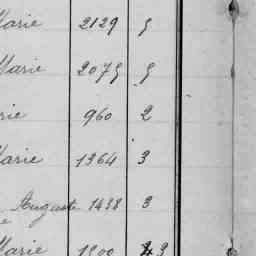 Marie 2129 5
Marie 2075 5
rie 960 2
Marie 1364 3
Auguste 1438 3
e
Marie 1300 3